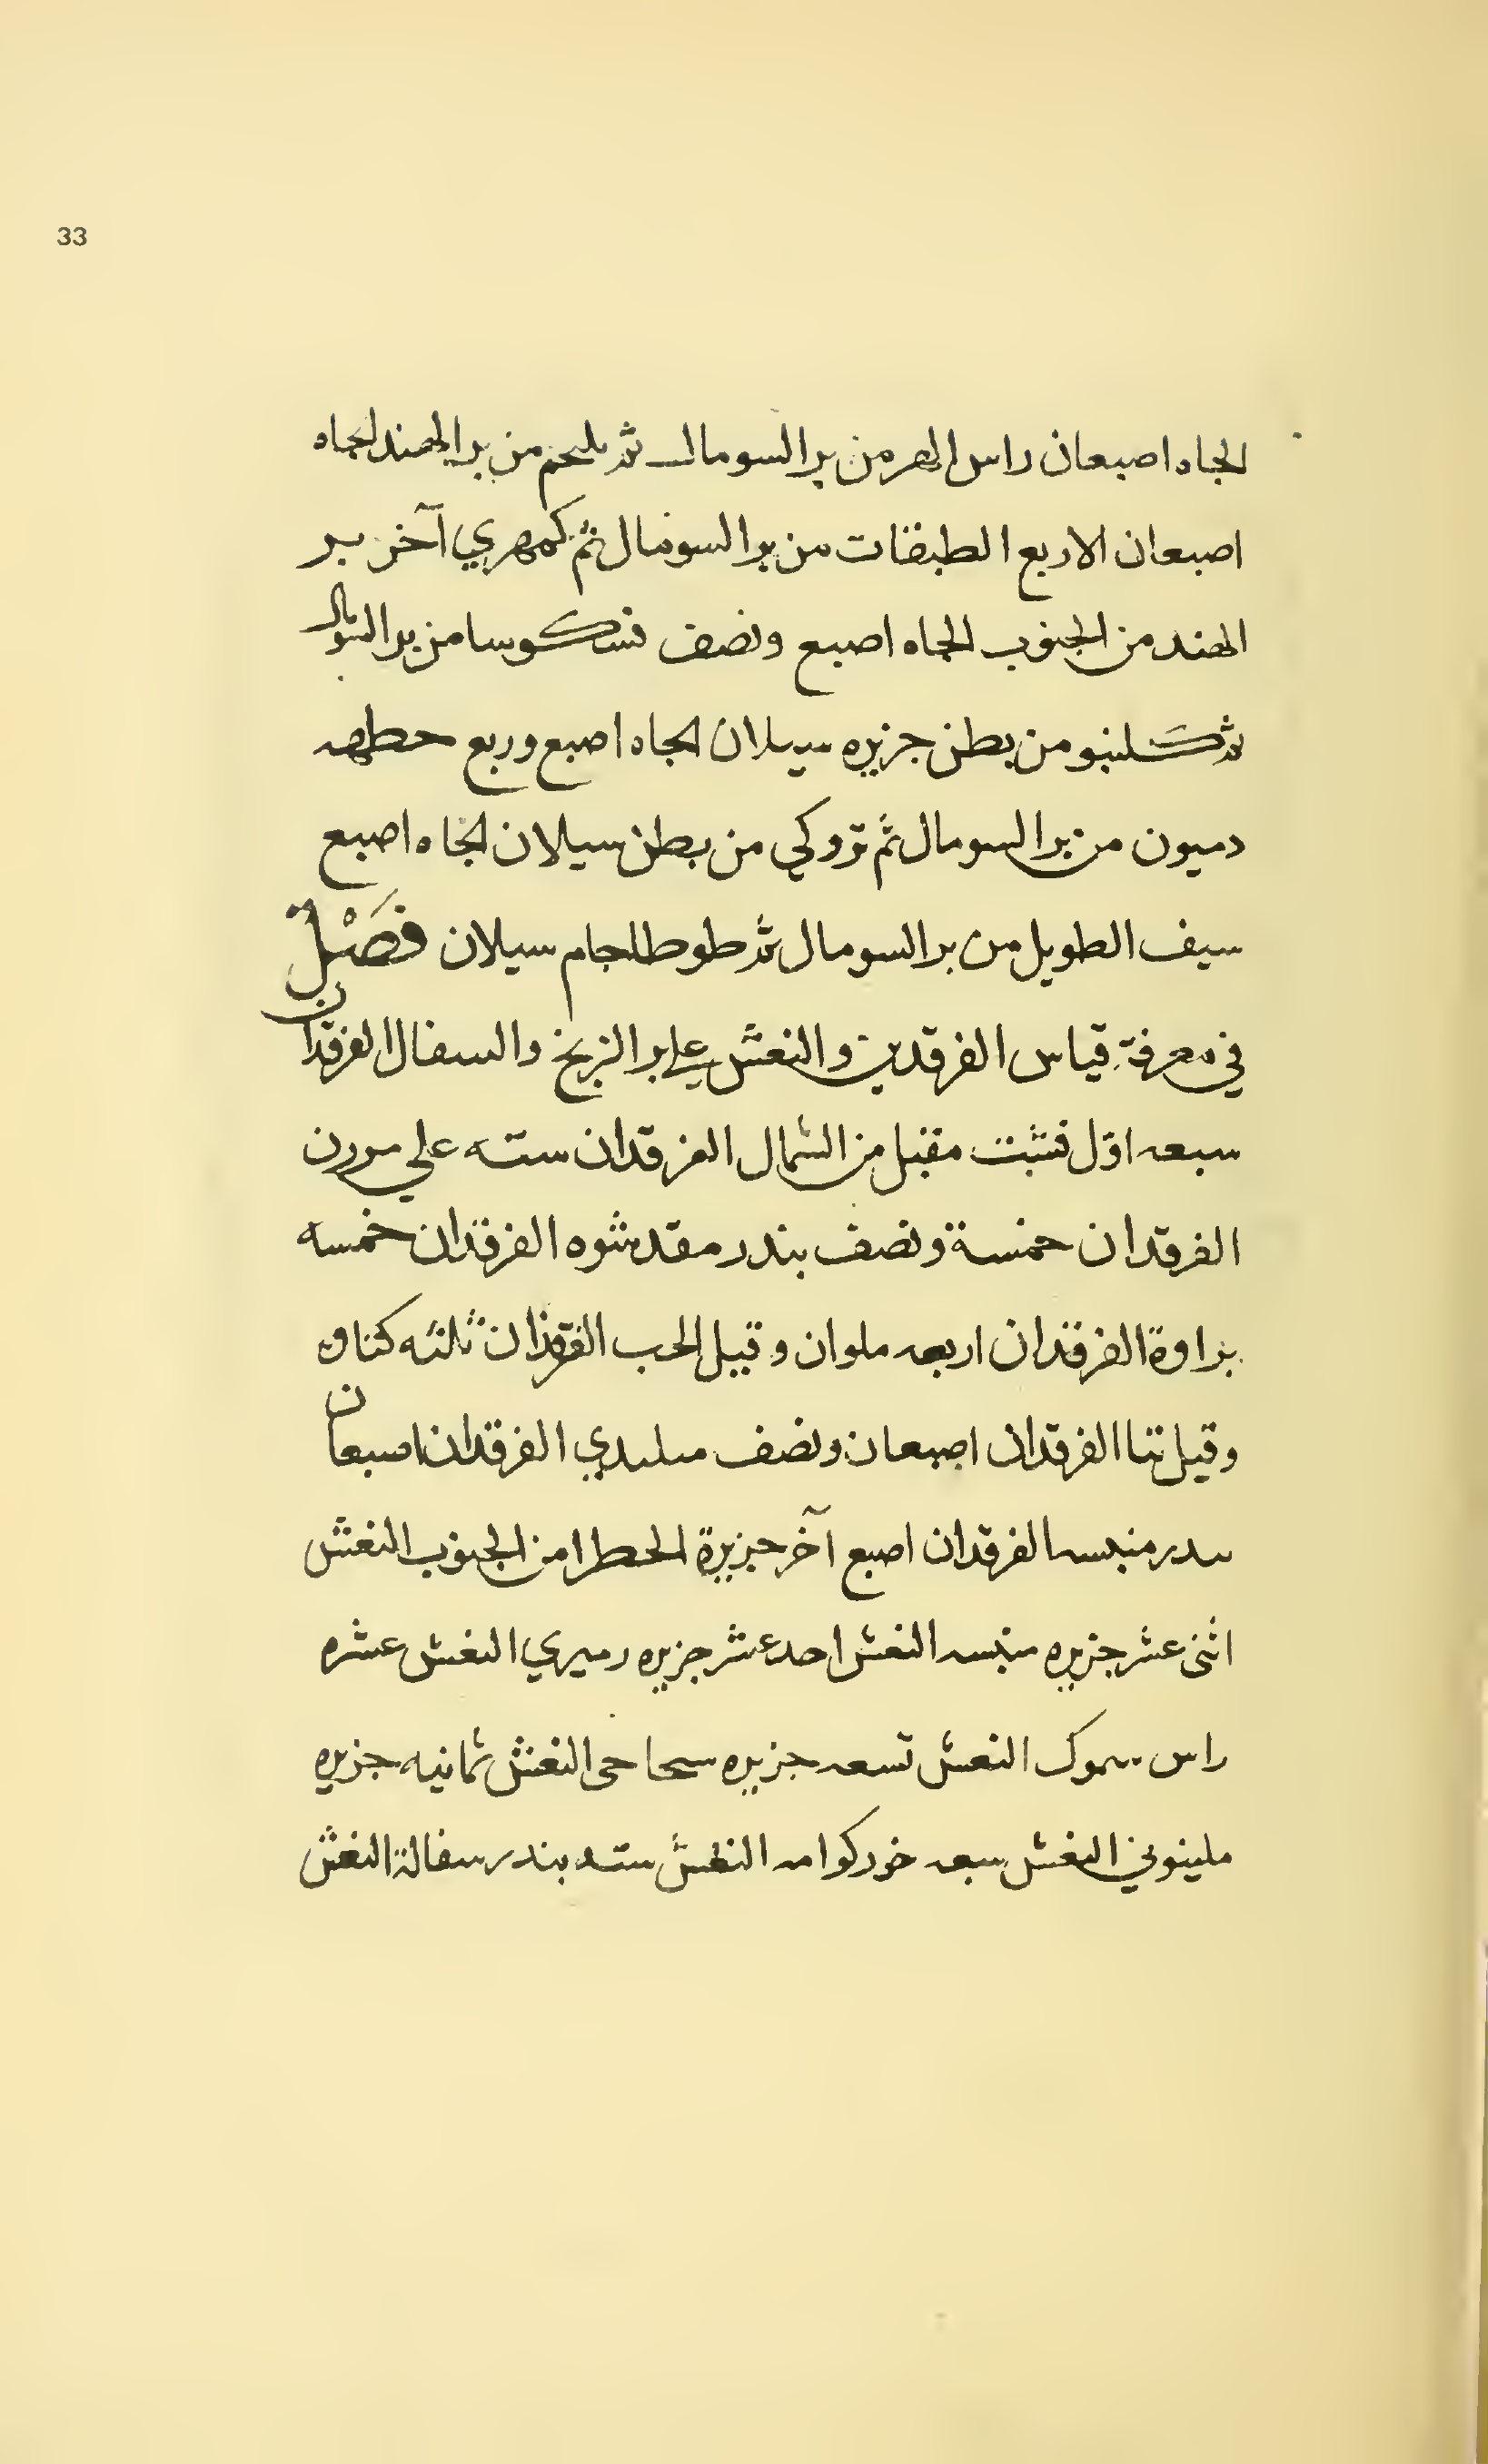 33
الجاه اصبعان راس الهر من بر السومال ثم ملحم من بر الهند الجاه
اصبعان الاربع الطبقات من بر السومال ثم كمهري آخر بر
الهند من الجنوب الجاه اصبع ونصف نسكوسا من بر السومال
ثم كلنبو من بطن جزيره سيلان الجاه اصبع وربع حطهه
دميون من بر السومال ثم تروكي من بطن سيلان الجاه اصبع
سيف الطويل من بر السومال ثم طوطاجام سيلان فَصْلٌ
في معرفة قياس الفرقدين والنعش علي بر الزنج والسفال الفرقدان
سبعه اوّل فشت مقبل من الشمال الفرقدان سته علي مورن
الفرقدان خمسة ونصف بندر مقدشوه الفرقدان خمسه
براوة الفرقدان اربعه ملوان وقيل الحب الفرقدان ثلثه كتاوه
وقيل بتا الفرقدان اصبعان ونصف مىلىدي الفرقدان اصبعان
ىىدر منبسه الفرقدان اصبع آخر جزيرة الحطرا من الجنوب النعش
اثنى عشر جزيره منبسه النعش احد عشر جزيره رميري النعش عشره
راس سموك النعش تسعه جزيره سحاحى النعش ثمانيه جزيره
ملينوني النعش سبعه خور كوامه النعش سته بندر سفالة النعش